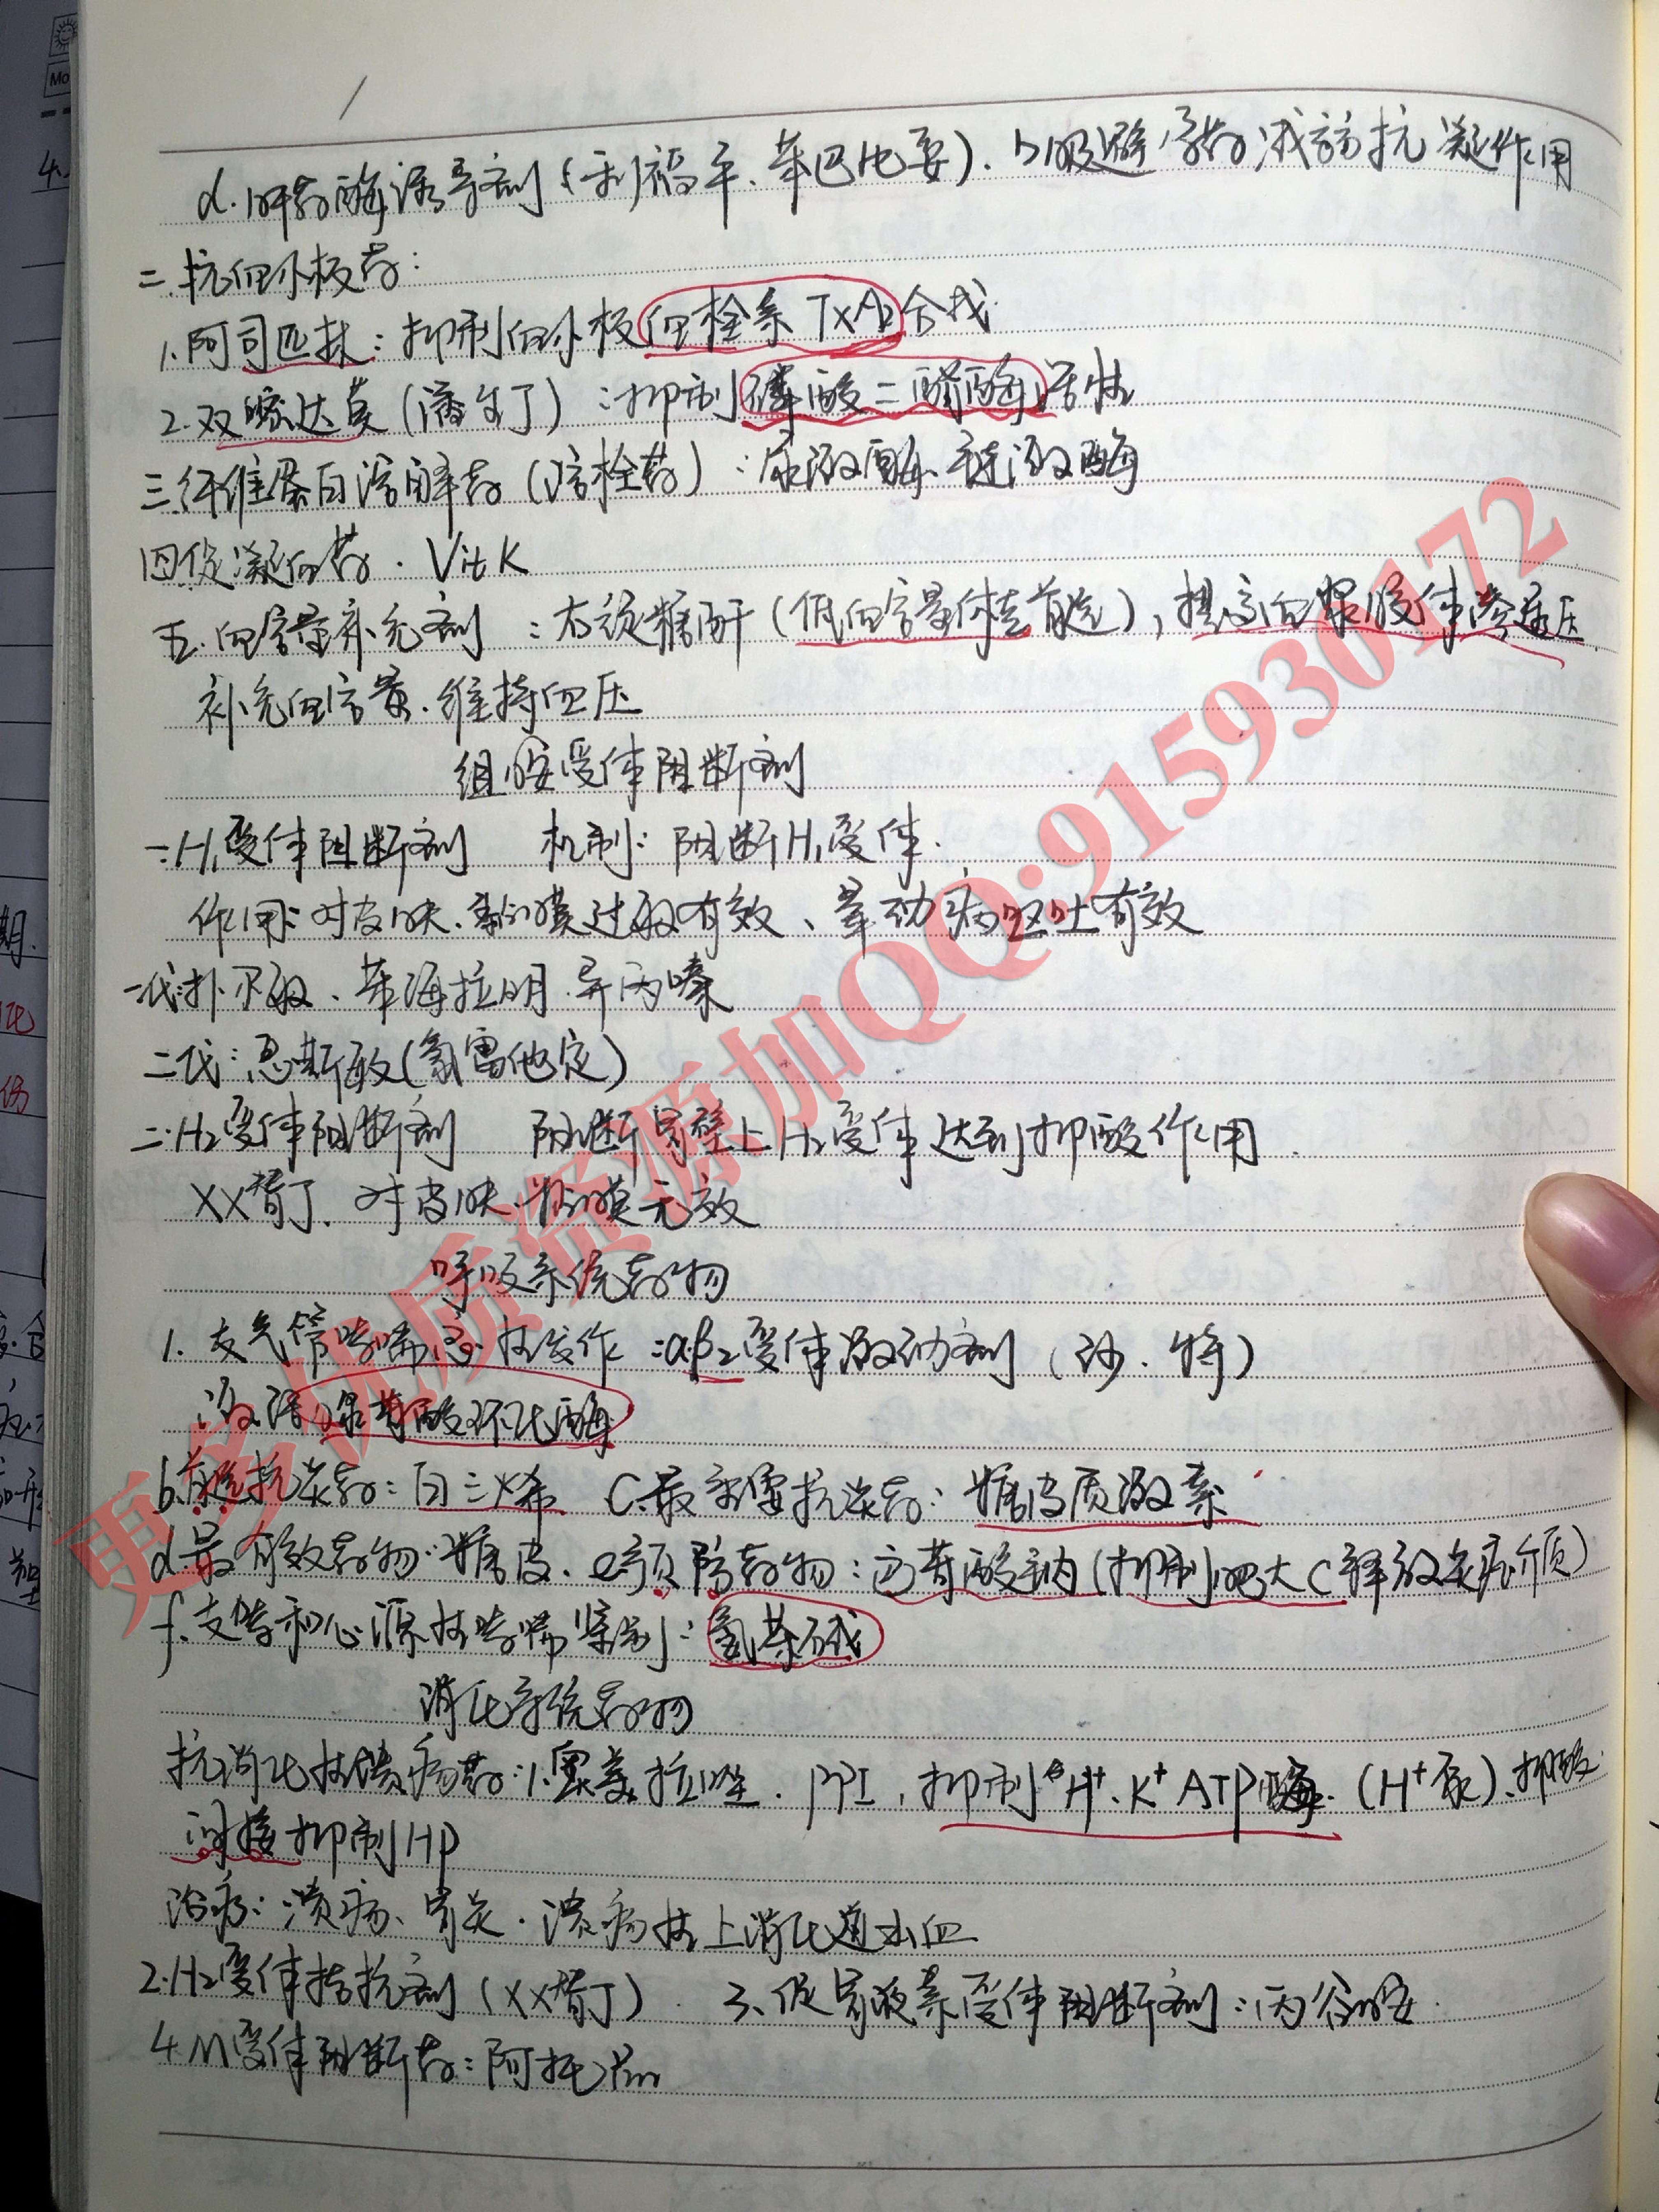 d.肝药酶诱导剂(利福平、苯巴比妥).口服避孕药减弱抗凝作用
二.抗血小板药:
1.阿司匹林:抑制血小板血栓素TXA2合成
2.双嘧达莫(潘生丁):抑制磷酸二酯酶活性
三.纤维蛋白溶解药(溶栓药):尿激酶、链激酶
四.促凝血药.VitK
五.血容量补充剂:右旋糖酐(低血容量休克首选),提高血浆胶体渗透压
补充血容量.维持血压
组胺受体阻断剂
一:H1受体阻断剂 机制:阻断H1受体.
作用:对皮肤、黏膜过敏有效、晕动病呕吐有效
一代:扑尔敏、苯海拉明.异丙嗪
二代:息斯敏(氯雷他定)
二:H2受体阻断剂 阻断胃壁上H2受体达到抑酸作用.
XX替丁.对皮肤.黏膜无效
呼吸系统药物
1.支气管哮喘急性发作:a.β2受体激动剂(沙.特)
激活腺苷酸环化酶
b.首选抗炎药:白三烯 C.最重要抗炎药:糖皮质激素
d.最有效药物:糖皮.e预防药物:色苷酸钠(抑制肥大C释放炎症介质)
f.支哮和心源性哮喘鉴别:氨茶碱
消化系统药物
抗消化性溃疡药:1.奥美拉唑.PPI,抑制H+.K+ATP酶.(H+泵).抑酸.
间接抑制HP
治疗:溃疡、胃炎.溃疡性上消化道出血
2.H2受体拮抗剂(XX替丁). 3、促胃液素受体阻断剂:丙谷胺.
4.M受体阻断药:阿托品
更多优质资源加QQ:915930172
4.
Mo
期.